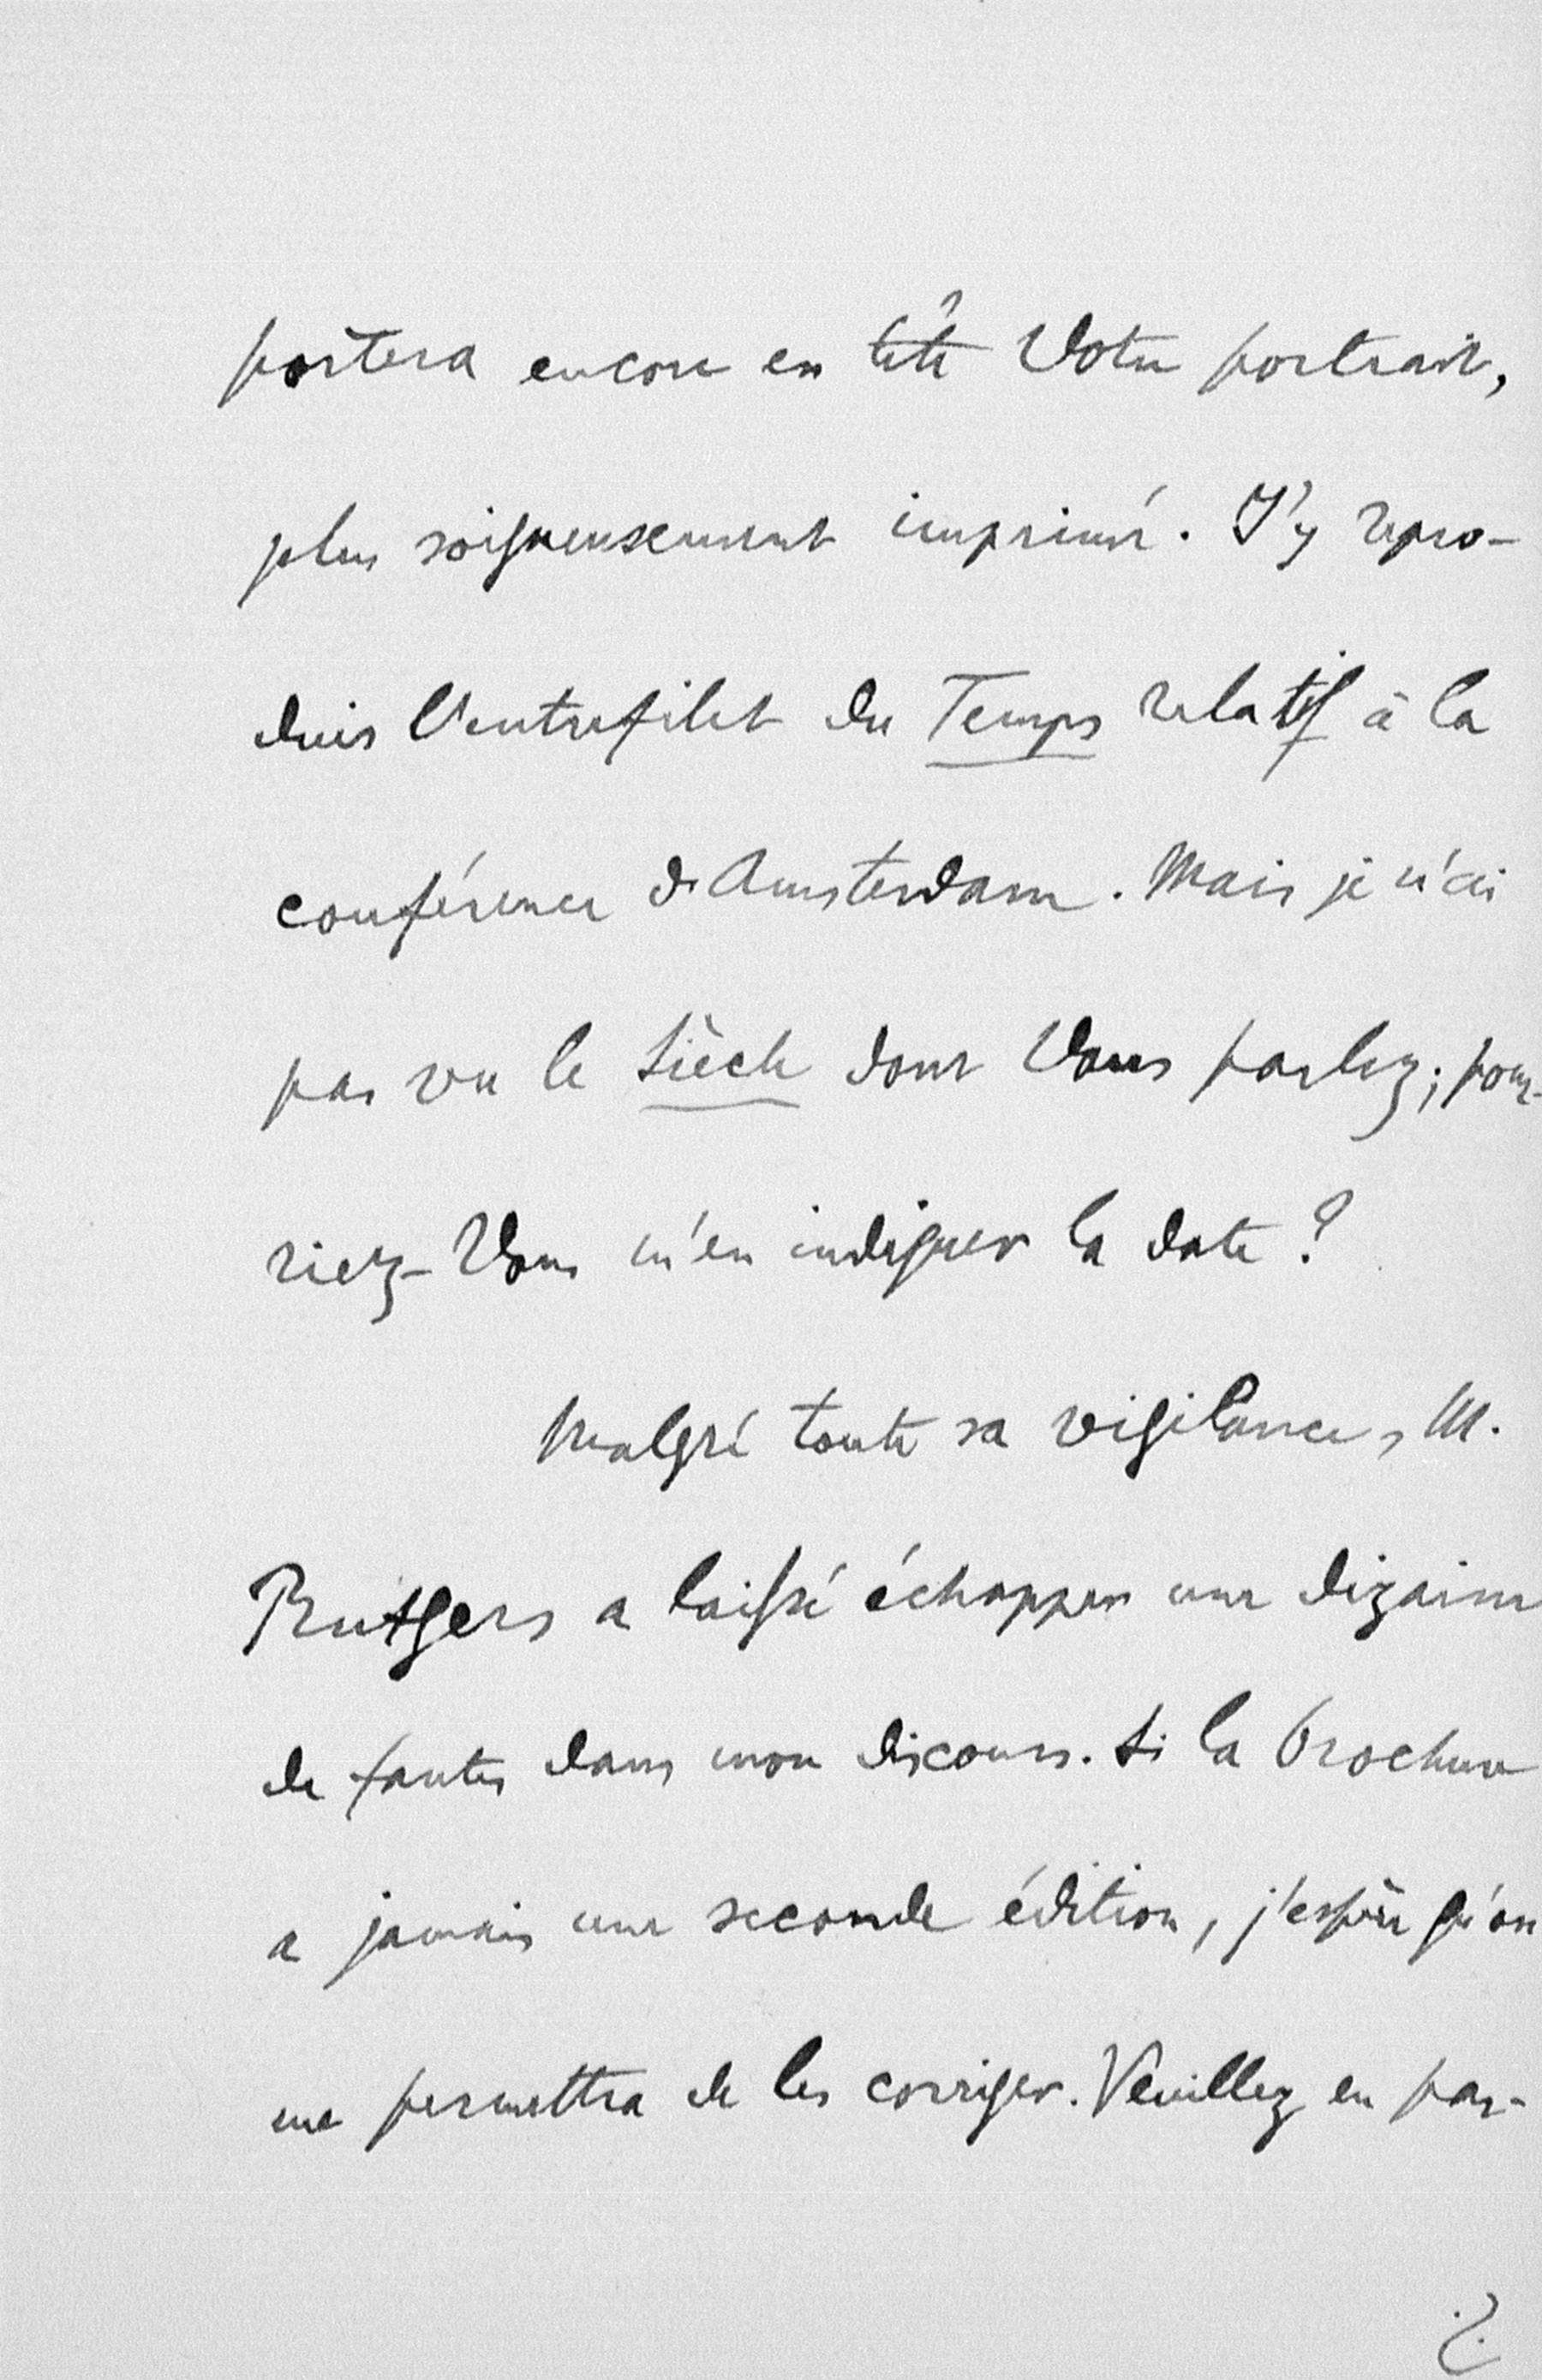 portera encore en tête Votre portrait,
plus soigneusement imprimé. J'y repro-
duis l'entrefilet du Temps relatif à la
conférence d'Amsterdam. Mais je n'ai
pas vu le Siècle dont Vous parlez; pour-
riez-Vous m'en indiquer la date ?
Malgré toute sa vigilance, M.
Rutgers a laissé échapper une dizaine
de fautes dans mon discours. Si la brochure
a jamais une seconde édition, j'espère qu'on
me permettra de les corriger. Veuillez en par-